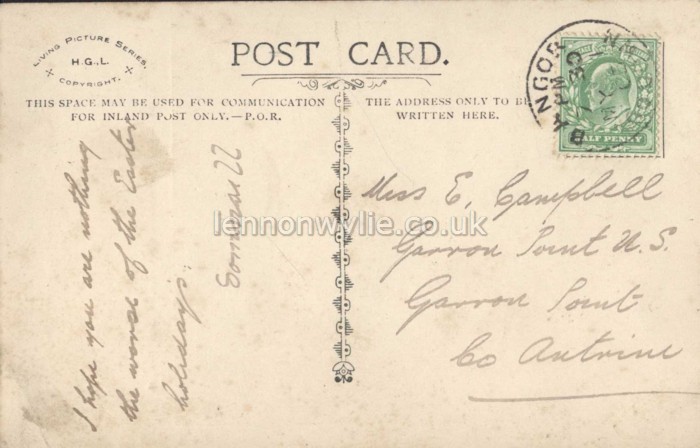 LIVING PICTURE SERIES.
H.G.L.
COPYRIGHT.
POST CARD.
THIS SPACE MAY BE USED FOR COMMUNICATION
FOR INLAND POST ONLY.—P.O.R.
THE ADDRESS ONLY TO BE
WRITTEN HERE.
BANGOR
HALF PENNY
I hope you are nothing
the worse of the Easter
holidays.
Miss E. Campbell
Garron Point N.S.
Garron Point
Co Antrim
lennonwylie.co.uk